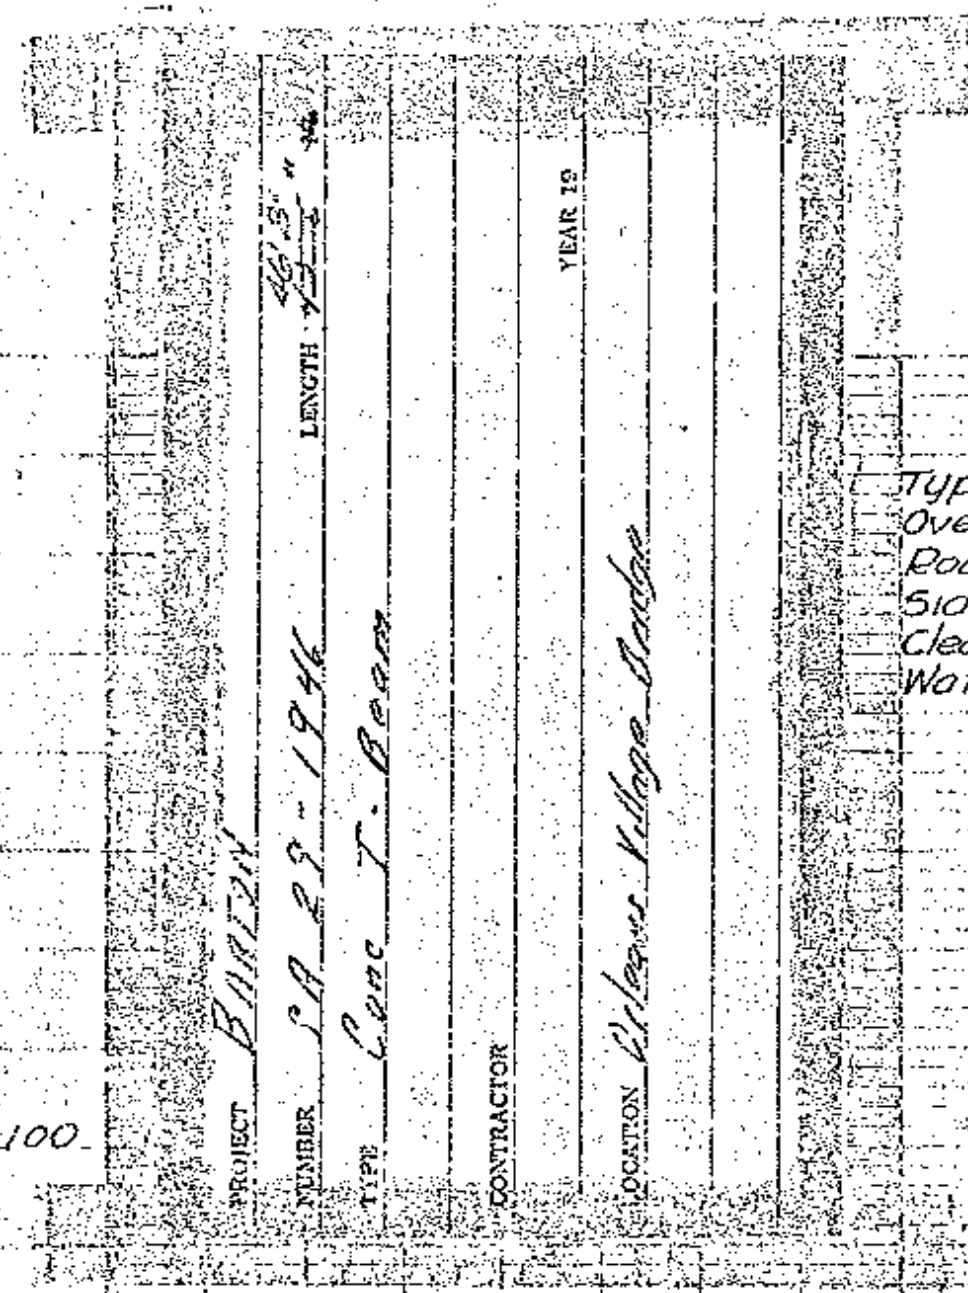 PROJECT BARTON
NUMBER SA 29 - 1946 LENGTH 46'3"
TYPE Conc T. Beam
CONTRACTOR
YEAR 19
LOCATION Orleans Village Bridge
Typ
Ove
Roa
Sid
Clea
Wat
100